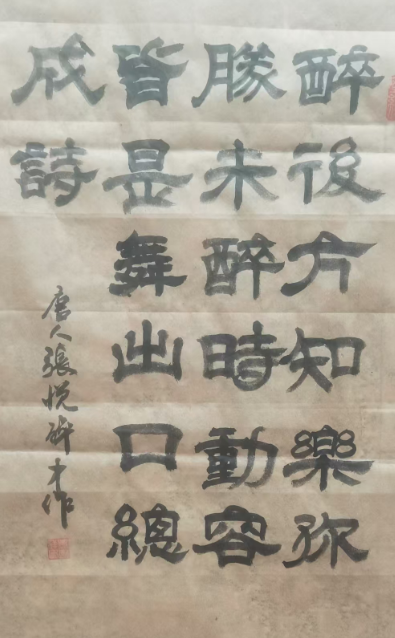 醉後方知樂弥
勝未醉時動容
皆是舞出口總
成詩
唐人張悅作